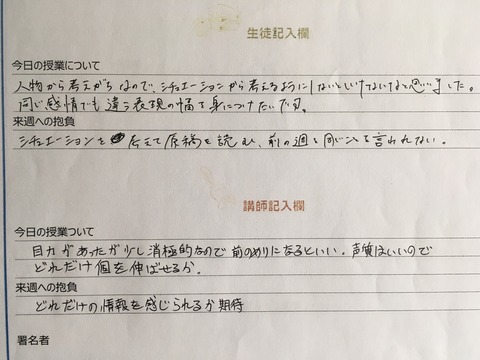 生徒記入欄
今日の授業について
人物から考えがちなので、シチュエーションから考えるようにしないといけないなと思いました。
同じ感情でも違う表現の幅を身につけたいです。
来週への抱負
シチュエーションを考えて原稿を読む、前の週と同じことを言われない。
講師記入欄
今日の授業ついて
目力があったが少し消極的なので前のめりになるといい。声質はいいので
どれだけ個を伸ばせるか。
来週への抱負
どれだけの情報を感じられるか期待
署名者